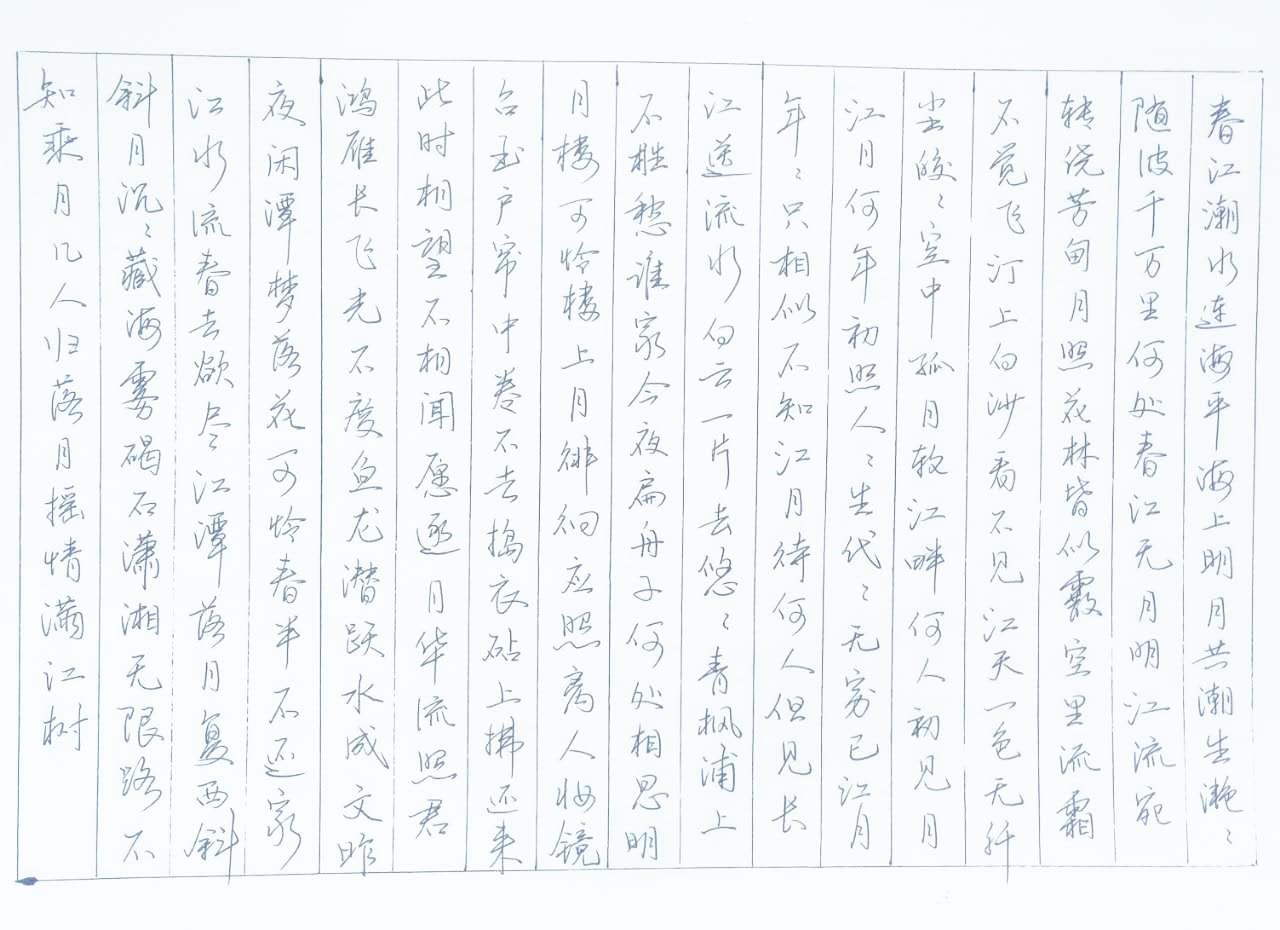 春江潮水连海平海上明月共潮生滟〻
随波千万里何处春江无月明江流宛
转绕芳甸月照花林皆似霰空里流霜
不觉飞汀上白沙看不见江天一色无纤
尘皎〻空中孤月轮江畔何人初见月
江月何年初照人〻生代〻无穷已江月
年〻只相似不知江月待何人但见长
江送流水白云一片去悠〻青枫浦上
不胜愁谁家今夜扁舟子何处相思明
月楼可怜楼上月徘徊应照离人妆镜
台玉户帘中卷不去捣衣砧上拂还来
此时相望不相闻愿逐月华流照君
鸿雁长飞光不度鱼龙潜跃水成文昨
夜闲潭梦落花可怜春半不还家
江水流春去欲尽江潭落月复西斜
斜月沉〻藏海雾碣石潇湘无限路不
知乘月几人归落月摇情满江树